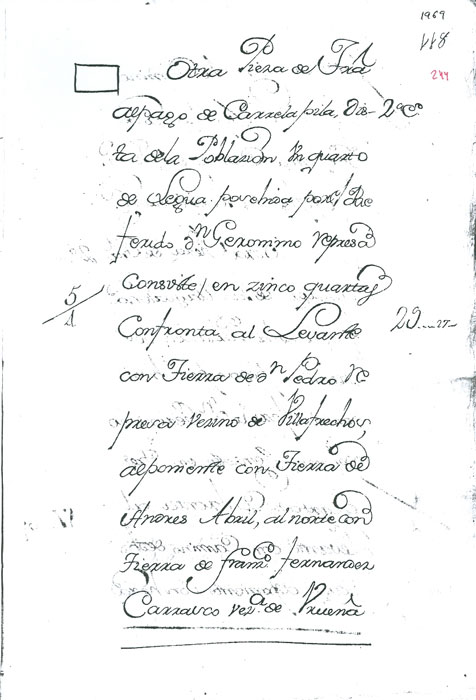 1969
118
244
Otra Pieza de Trrâ
al pago de Carrelapila, Dis- 2ª Cᵈ
ta dela Poblazion, Un quarto
de Legua, parehiza por el Re
ferido Dⁿ Geronimo Represâ
Consiste, en zinco quartas
5/4
Confronta al Levante 29...27-
con Tierra de Dⁿ Pedro Re
presa vezino de Villafrechos,
al poniente con Tierra de
Andres Abril, al norte con
Tierra de Franᶜᵒ Fernandez
Carrasco vezº de Vrueñâ